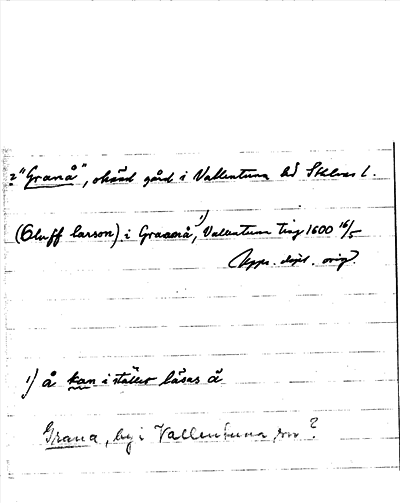 "Granå", okänd gård i Vallentuna hd Sthlms l.
(Oluff larson) i Graanå¹⁾, Vallentuna ting 1600 16/5
Upps. dopb. orig.
1) å kan i stället läsas ä
Grana, by i Vallentuna sn?